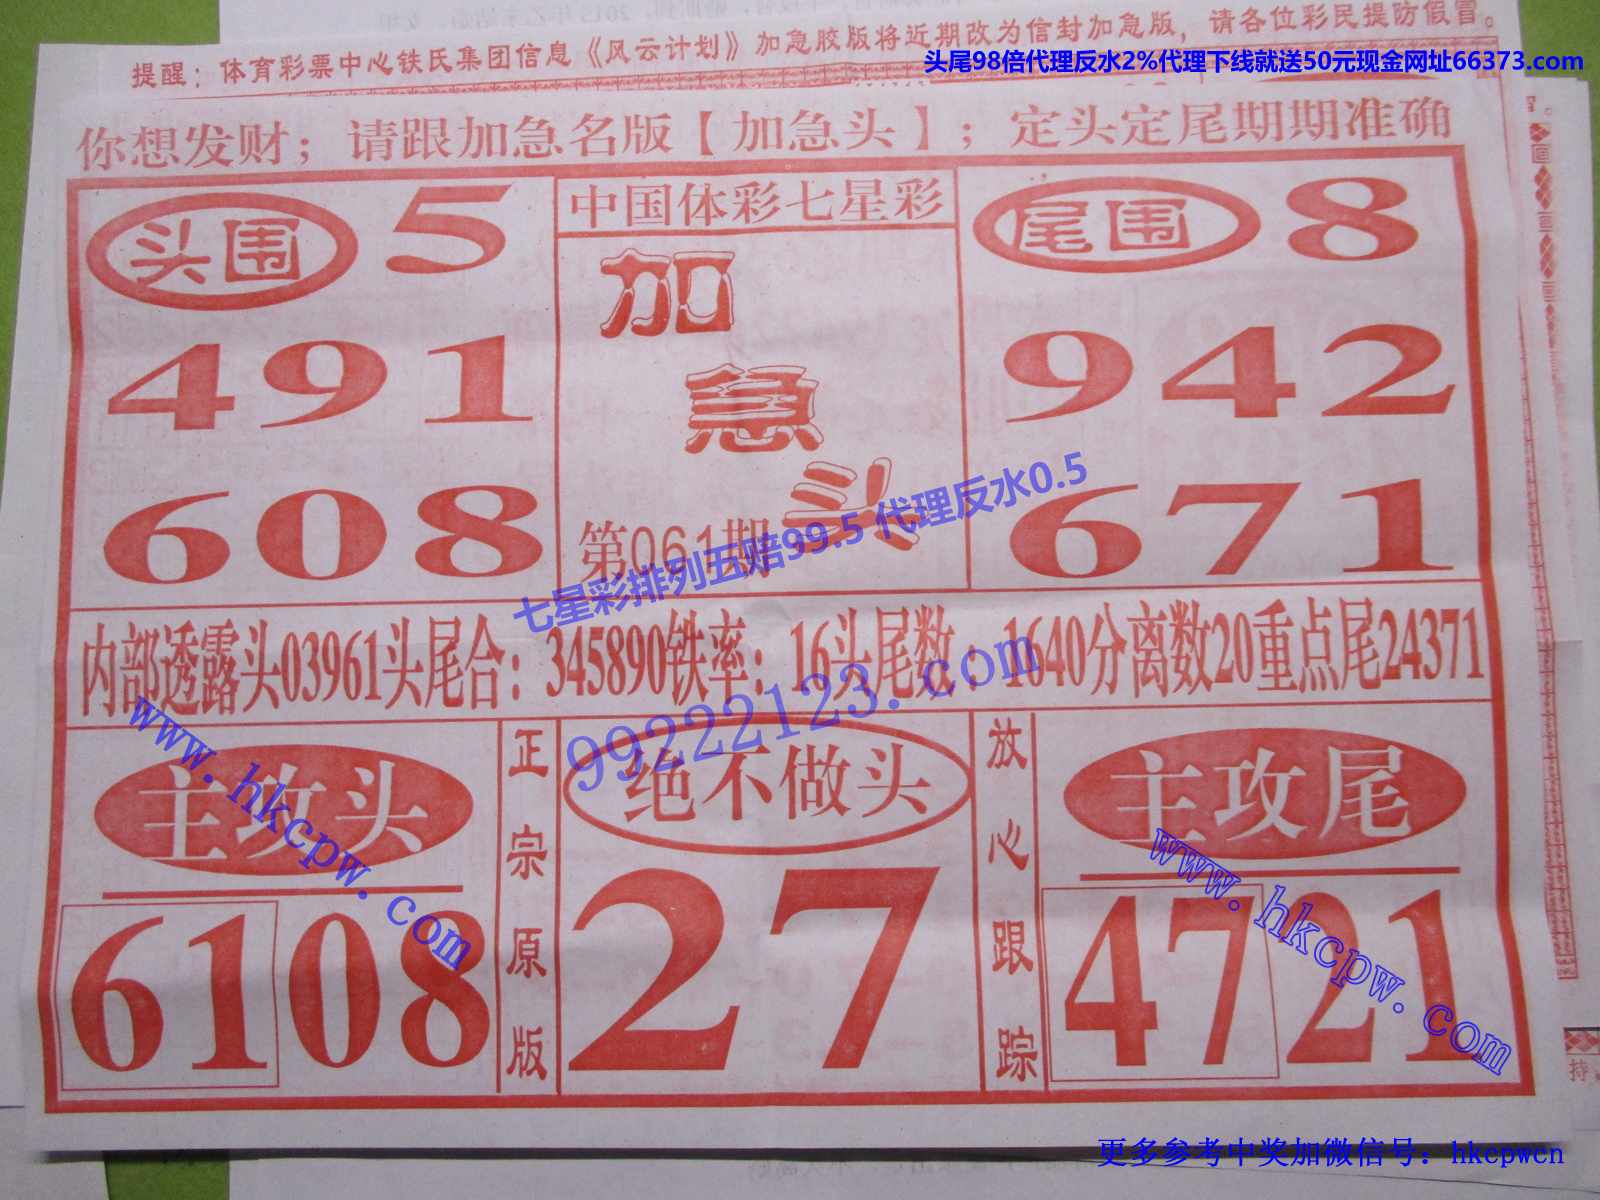 提醒：体育彩票中心铁氏集团信息《风云计划》加急胶版将近期改为信封加急版，请各位彩民提防假冒。
头尾98倍代理反水2%代理下线就送50元现金网址66373.com
你想发财；请跟加急名版【加急头】；定头定尾期期准确
头围 5
491
608
中国体彩七星彩
加
急
头
第061期
尾围 8
942
671
七星彩排列五赔99.5 代理反水0.5
内部透露头03961头尾合：345890铁率：16头尾数：1640分离数20重点尾24371
99222123.com
www.hkcpw.com
主攻头
6108
正宗原版
绝不做头
27
放心跟踪
主攻尾
4721
www.hkcpw.com
持
更多参考中奖加微信号：hkcpwcn